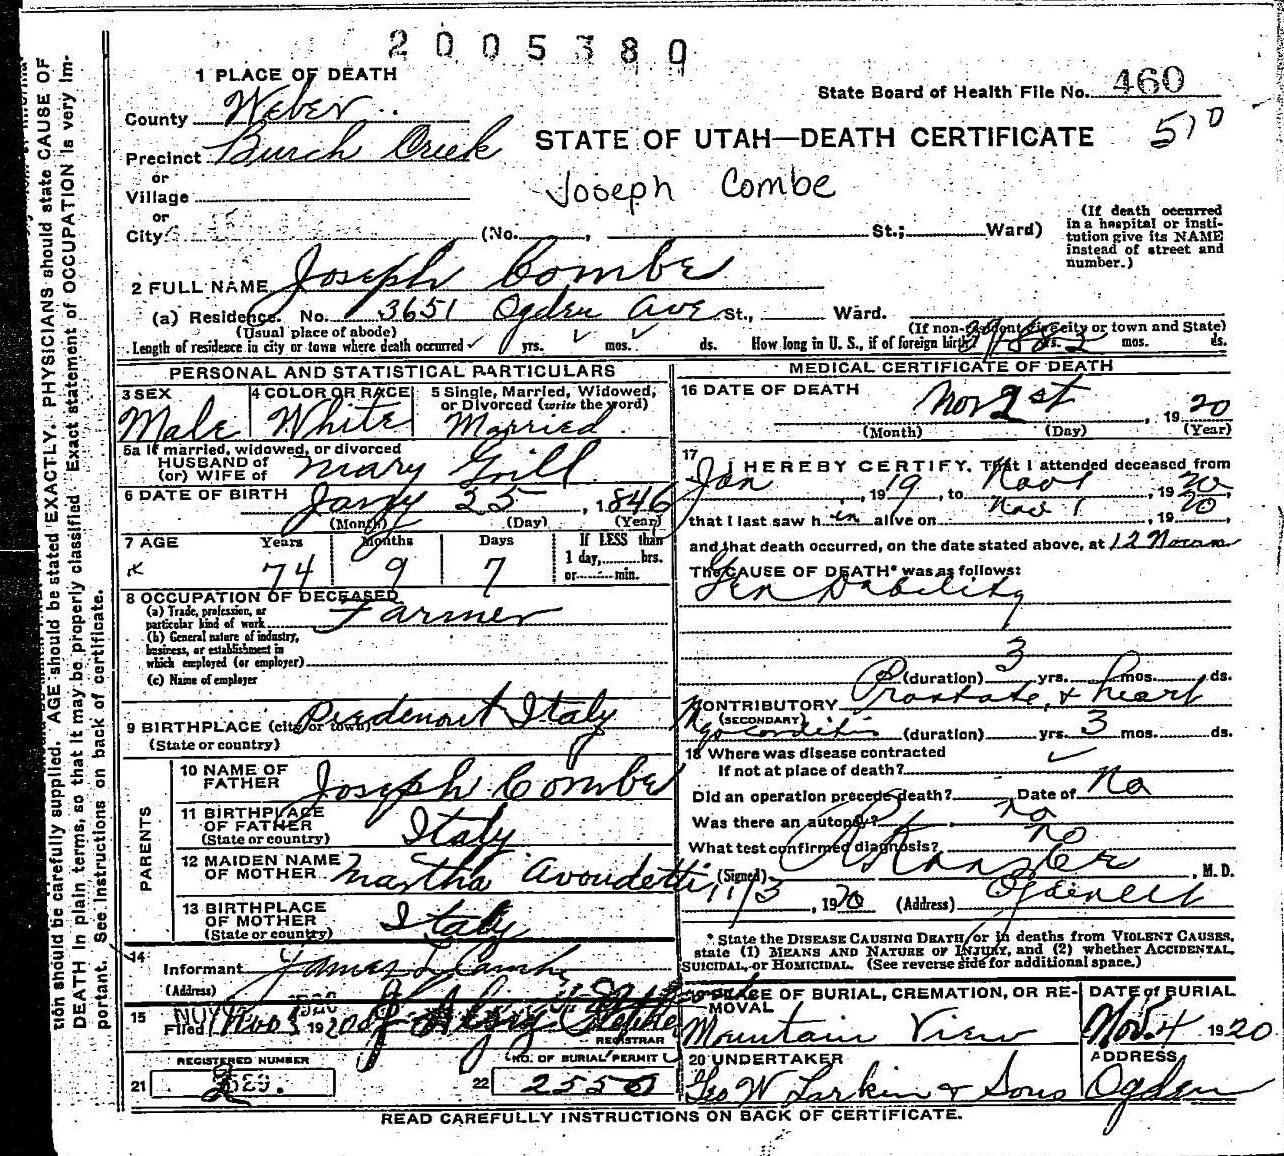 2005380
1 PLACE OF DEATH
State Board of Health File No. 460
County Weber
510
Precinct Burch Creek
STATE OF UTAH—DEATH CERTIFICATE
or
Village
Joseph Combe
or
City (No. , St.; Ward)
(If death occurred in a hospital or insti-
tution give its NAME
instead of street and
number.)
2 FULL NAME Joseph Combe
(a) Residence. No. 3651 Ogden Ave St., Ward.
(Usual place of abode)
(If non-resident give city or town and State)
Length of residence in city or town where death occurred yrs. mos. ds. How long in U. S., if of foreign birth? yrs. mos. ds.
PERSONAL AND STATISTICAL PARTICULARS
3 SEX Male
4 COLOR OR RACE White
5 Single, Married, Widowed,
or Divorced (write the word)
Married
5a If married, widowed, or divorced
HUSBAND of
(or) WIFE of Mary Grill
6 DATE OF BIRTH Jany 25, 1846
(Month) (Day) (Year)
7 AGE Years Months Days If LESS than
1 day, hrs.
or min.
74 9 7
8 OCCUPATION OF DECEASED
(a) Trade, profession, or
particular kind of work Farmer
(b) General nature of industry,
business, or establishment in
which employed (or employer)
(c) Name of employer
9 BIRTHPLACE (city or town) Piedemont Italy
(State or country)
PARENTS
10 NAME OF
FATHER Joseph Combe
11 BIRTHPLACE
OF FATHER Italy
(State or country)
12 MAIDEN NAME
OF MOTHER Martha Avondetti
13 BIRTHPLACE
OF MOTHER Italy
(State or country)
14
Informant James L Combe
(Address)
15
Filed Nov 1920
REGISTRAR
REGISTERED NUMBER
21
NO. OF BURIAL PERMIT
22 2550
MEDICAL CERTIFICATE OF DEATH
16 DATE OF DEATH Nov 1st, 1920
(Month) (Day) (Year)
17
I HEREBY CERTIFY, That I attended deceased from
Jan, 1919, to Nov 1, 1920,
that I last saw him alive on Nov 1, 1920,
and that death occurred, on the date stated above, at 12 Noon m
The CAUSE OF DEATH* was as follows:
Gen Debility
(duration) 3 yrs. mos. ds.
CONTRIBUTORY Prostate, & heart
(SECONDARY)
Myocarditis (duration) yrs. 3 mos. ds.
18 Where was disease contracted
If not at place of death?
Did an operation precede death? Date of No
Was there an autopsy? no
What test confirmed diagnosis? no
(Signed) , M. D.
11/3, 1920 (Address) Ogden Ut
* State the DISEASE CAUSING DEATH, or in deaths from VIOLENT CAUSES,
state (1) MEANS AND NATURE OF INJURY, and (2) whether ACCIDENTAL,
SUICIDAL, or HOMICIDAL. (See reverse side for additional space.)
19 PLACE OF BURIAL, CREMATION, OR RE-
MOVAL
Mountain View
DATE of BURIAL
Nov. 4 1920
20 UNDERTAKER
Geo W Larkin & Sons
ADDRESS
Ogden
READ CAREFULLY INSTRUCTIONS ON BACK OF CERTIFICATE.
tion should be carefully supplied. AGE should be stated EXACTLY. PHYSICIANS should state CAUSE OF
DEATH in plain terms, so that it may be properly classified. Exact statement of OCCUPATION is very im-
portant. See instructions on back of certificate.